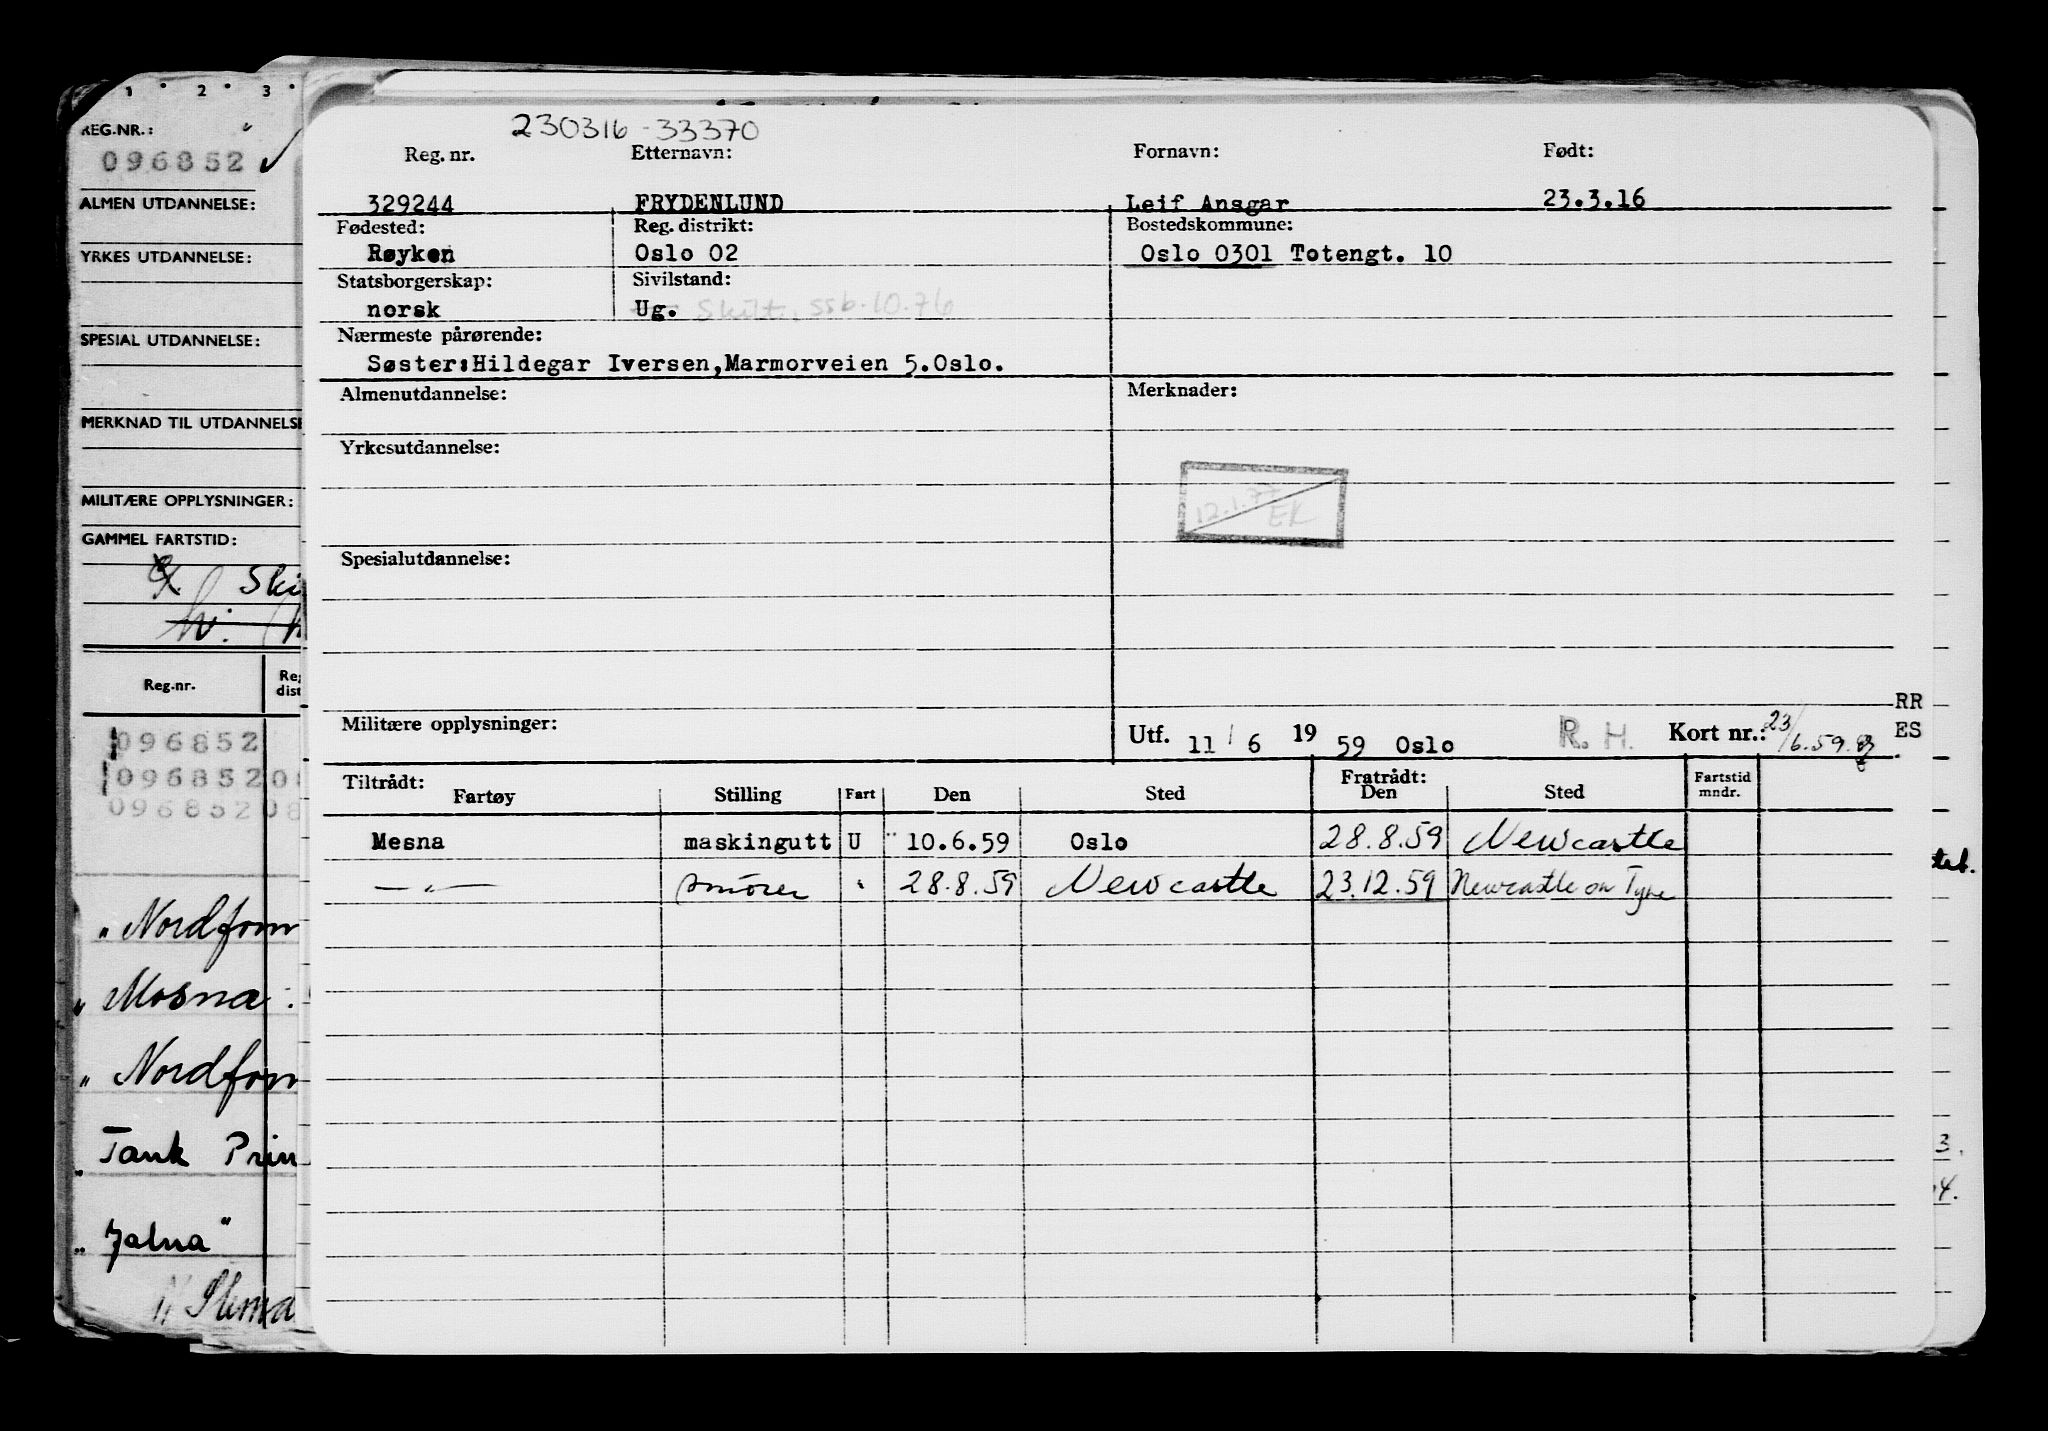 230316-33370
Reg. nr. Etternavn: Fornavn: Født:
329244 FRYDENLUND Leif Ansgar 23.3.16
Fødested: Reg. distrikt: Bostedskommune:
Røyken Oslo 02 Oslo 0301 Totengt. 10
Statsborgerskap: Sivilstand:
norsk Ug. Skilt. ssb. 10.76
Nærmeste pårørende:
Søster:Hildegar Iversen,Marmorveien 5.Oslo.
Almenutdannelse: Merknader:
Yrkesutdannelse:
12.1.77
EK
Spesialutdannelse:
RR
Militære opplysninger: Utf. 11 / 6 19 59 Oslo R. H. Kort nr.: 23/6.59. ES
Tiltrådt: Fratrådt:
Fartøy Stilling Fart Den Sted Den Sted Fartstid mndr.
Mesna maskingutt U 10.6.59 Oslo 28.8.59 Newcastle
— " — smører " 28.8.59 Newcastle 23.12.59 Newcastle on Tyne
1 2 3
REG.NR.:
096852
ALMEN UTDANNELSE:
YRKES UTDANNELSE:
SPESIAL UTDANNELSE:
MERKNAD TIL UTDANNELSE
MILITÆRE OPPLYSNINGER:
GAMMEL FARTSTID:
Ski
Reg.nr. Reg dist
096852
096852 08
096852 08
" Nordfonn
" Mosna
" Nordfonn
" Tank Prin
" Jalna "
3.
4.